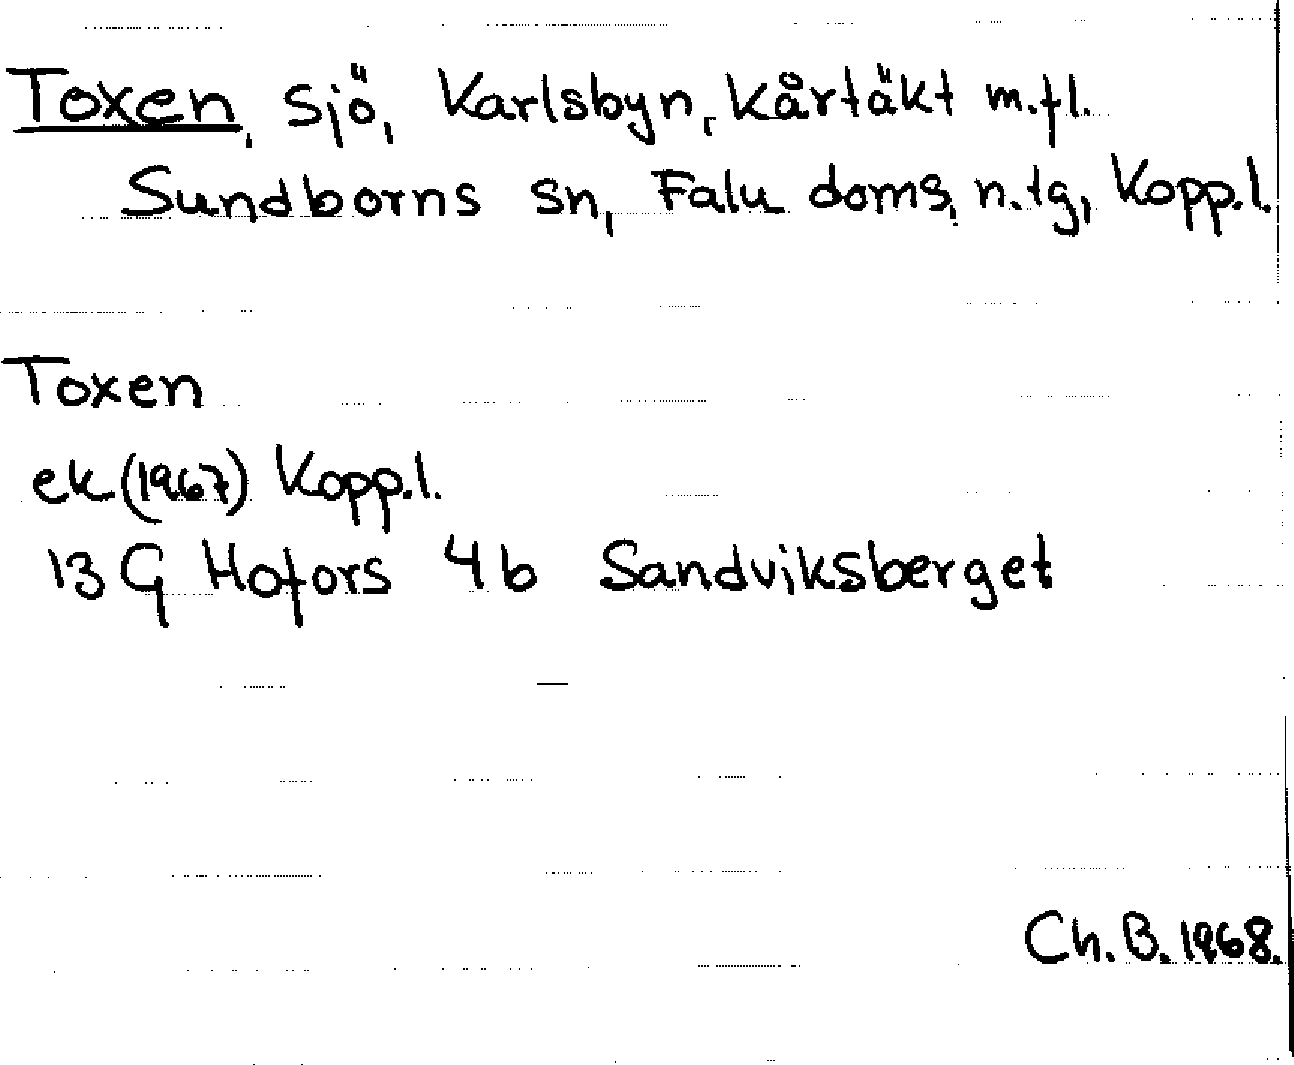 Toxen, sjö, Karlsbyn, Kårtäkt m.fl.
Sundborns sn, Falu doms. n.tg, Kopp.l.
Toxen
ek (1967) Kopp.l.
13 G Hofors 4b Sandviksberget
Ch. B. 1968.